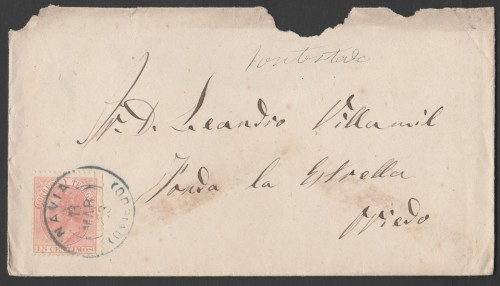 Contestada
Sr. D. Leandro Villamil
Fonda la Estrella
Oviedo
NAVIA
MAR
(OVIEDO)